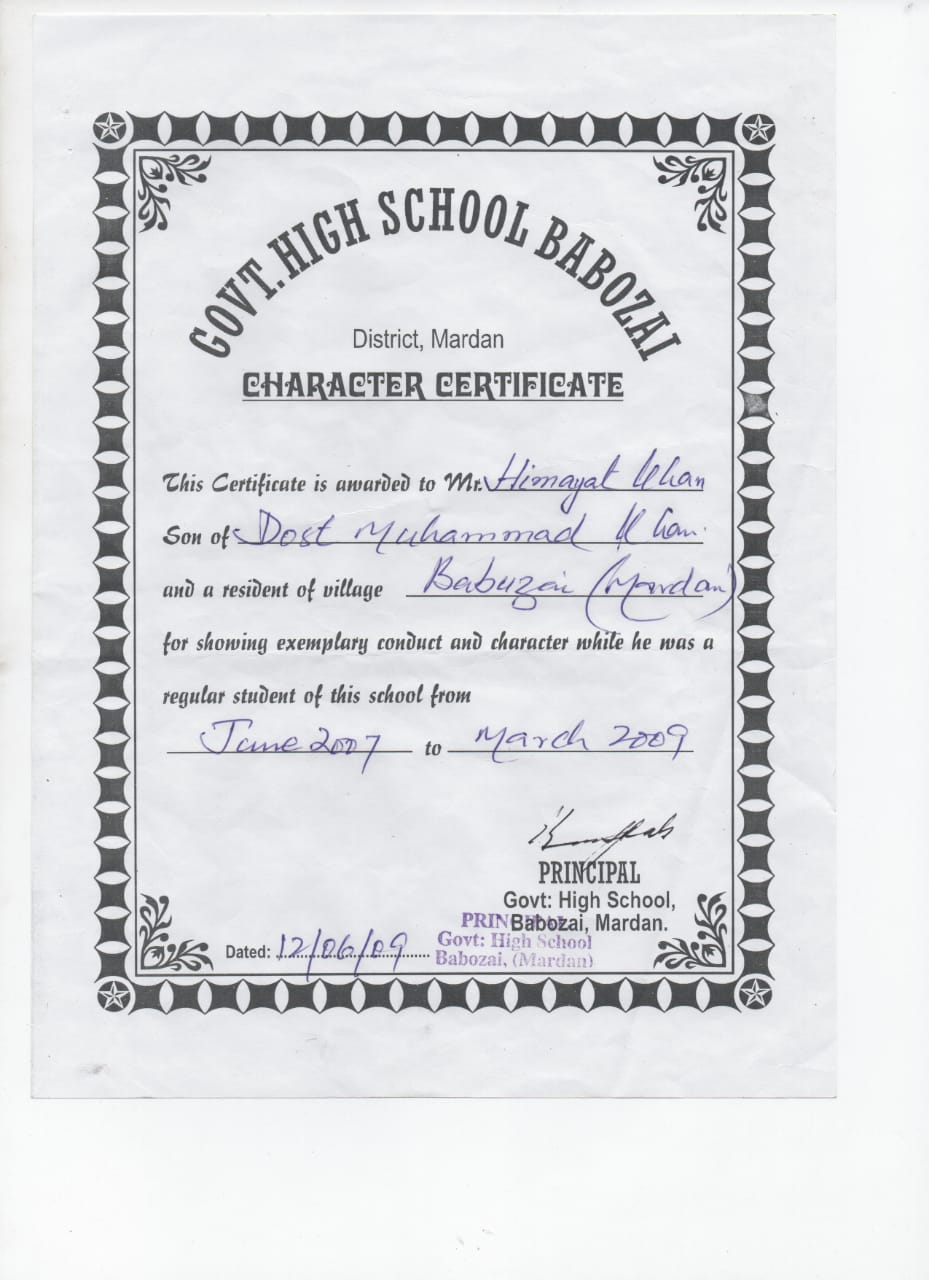 GOVT. HIGH SCHOOL BABOZAI
District, Mardan
CHARACTER CERTIFICATE
This Certificate is awarded to Mr. Himayat Khan
Son of Dost Muhammad Khan
and a resident of village Babuzai (Mardan)
for showing exemplary conduct and character while he was a
regular student of this school from
June 2007 to March 2009
PRINCIPAL
Govt: High School,
Babozai, Mardan.
PRINCIPAL
Govt: High School
Babozai, (Mardan)
Dated: 12/06/09